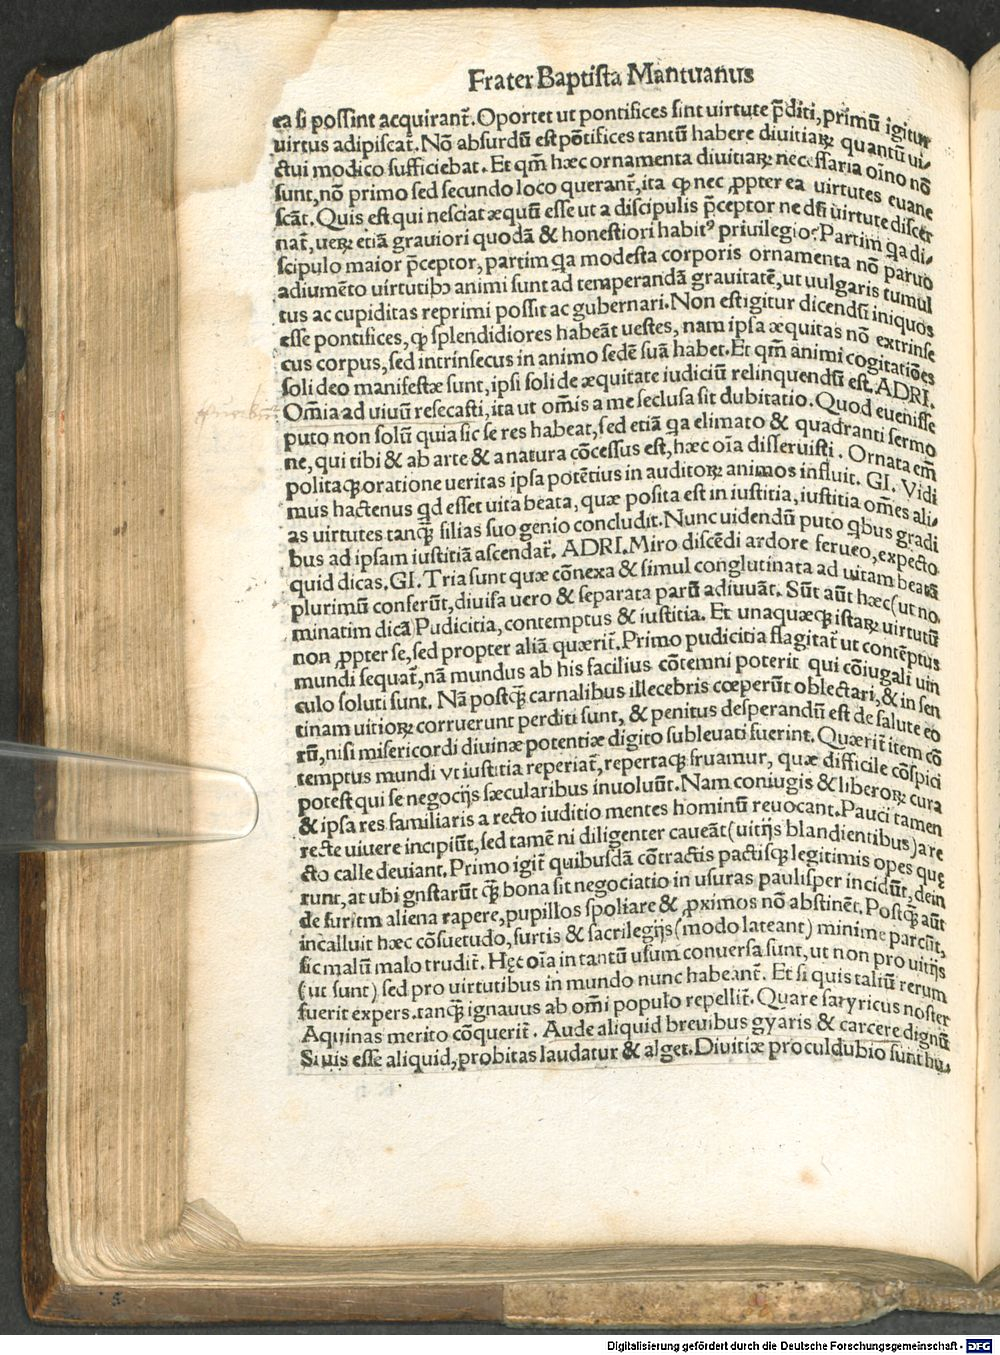 Frater Baptista Mantuanus
ea si possint acquirant̃. Oportet ut pontifices sint uirtute p̃diti, primũ igitur
uirtus adipiscat̃. Nõ absurdũ est põtifices tantũ habere diuitiaꝝ quantũ ui-
ctui modico sufficiebat. Et qm̃ hæc ornamenta diuitiaꝝ necessaria oĩno nõ
sunt, nõ primo sed secundo loco querant̃, ita ꝙ nec ꝓpter ea uirtutes euane
scãt. Quis est qui nesciat æquũ esse ut a discipulis p̃ceptor ne dũ uirtute discer
nat̃, ueꝝ etiã grauiori quodã & honestiori habitꝰ priuilegio? Partim qa di-
scipulo maior p̃ceptor, partim qa modesta corporis ornamenta nõ paruo
adiumẽto uirtutibꝫ animi sunt ad temperandã grauitatẽ, ut uulgaris tumul
tus ac cupiditas reprimi possit ac gubernari. Non est igitur dicendũ iniquos
esse pontifices, ꝙ splendidiores habeãt uestes, nam ipsa æquitas nõ extrinse
cus corpus, sed intrinsecus in animo sedẽ suã habet. Et qm̃ animi cogitatiões
soli deo manifestæ sunt, ipsi soli de æquitate iudiciũ relinquendũ est. ADRI.
Om̃ia ad uiuũ resecasti, ita ut om̃is a me seclusa sit dubitatio. Quod euenisse
puto non solũ quia sic se res habeat, sed etiã qa elimato & quadranti sermo
ne, qui tibi & ab arte & a natura cõcessus est, hæc oĩa disseruisti. Ornata em̃
politaqꝫ oratione ueritas ipsa potẽtius in auditoꝝ animos influit. GI. Vidi
mus hactenus qd esset uita beata, quæ posita est in iustitia, iustitia om̃es ali-
as uirtutes tanqꝫ̃ filias suo genio concludit. Nunc uidendũ puto qbus gradi
bus ad ipsam iustitiã ascendat̃. ADRI. Miro discẽdi ardore ferueo, expecto
quid dicas. GI. Tria sunt quæ cõnexa & simul conglutinata ad uitam beatã
plurimũ conferũt, diuisa uero & separata parũ adiuuãt. Sũt aũt hæc (ut no
minatim dicã) Pudicitia, contemptus & iustitia. Et unaquæqꝫ istaꝝ uirtutũ
non ꝓpter se, sed propter aliã quærit̃. Primo pudicitia flagitat̃ ut contẽptus
mundi sequat̃, nã mundus ab his facilius cõtemni poterit qui cõiugali uin
culo soluti sunt. Nã postqꝫ̃ carnalibus illecebris cœperũt oblectari, & in sen
tinam uitioꝝ corruerunt perditi sunt, & penitus desperandũ est de salute eo
rũ, nisi misericordi diuinæ potentiæ digito subleuati fuerint. Quærit̃ item cõ
temptus mundi vt iustitia reperiat̃, repertaqꝫ fruamur, quæ difficile cõspici
potest qui se negocijs sæcularibus inuoluũt. Nam coniugis & liberoꝝ cura
& ipsa res familiaris a recto iuditio mentes hominũ reuocant. Pauci tamen
recte uiuere incipiũt, sed tamẽ ni diligenter caueãt (uitijs blandientibus) a re
cto calle deuiant. Primo igit̃ quibusdã cõtractis pactisqꝫ legitimis opes quę
runt, at ubi gnstarũt qꝫ̃ bona sit negociatio in usuras paulisper incidũt, dein
de furitm aliena rapere, pupillos spoliare & ꝓximos nõ abstinẽt. Postqꝫ̃ aũt
incalluit hæc cõsuetudo, furtis & sacrilegijs (modo lateant) minime parcũt,
sic malũ malo trudit̃. Hęc oĩa in tantũ usum conuersa sunt, ut non pro uitijs
(ut sunt) sed pro uirtutibus in mundo nunc habeant̃. Et si quis taliũ rerum
fuerit expers. tanqꝫ̃ ignauus ab om̃i populo repellit̃. Quare satyricus noster
Aquinas merito cõquerit̃. Aude aliquid breuibus gyaris & carcere dignũ
Si uis esse aliquid, probitas laudatur & alget. Diuitiæ procul dubio sunt hu-
Digitalisierung gefördert durch die Deutsche Forschungsgemeinschaft - DFG